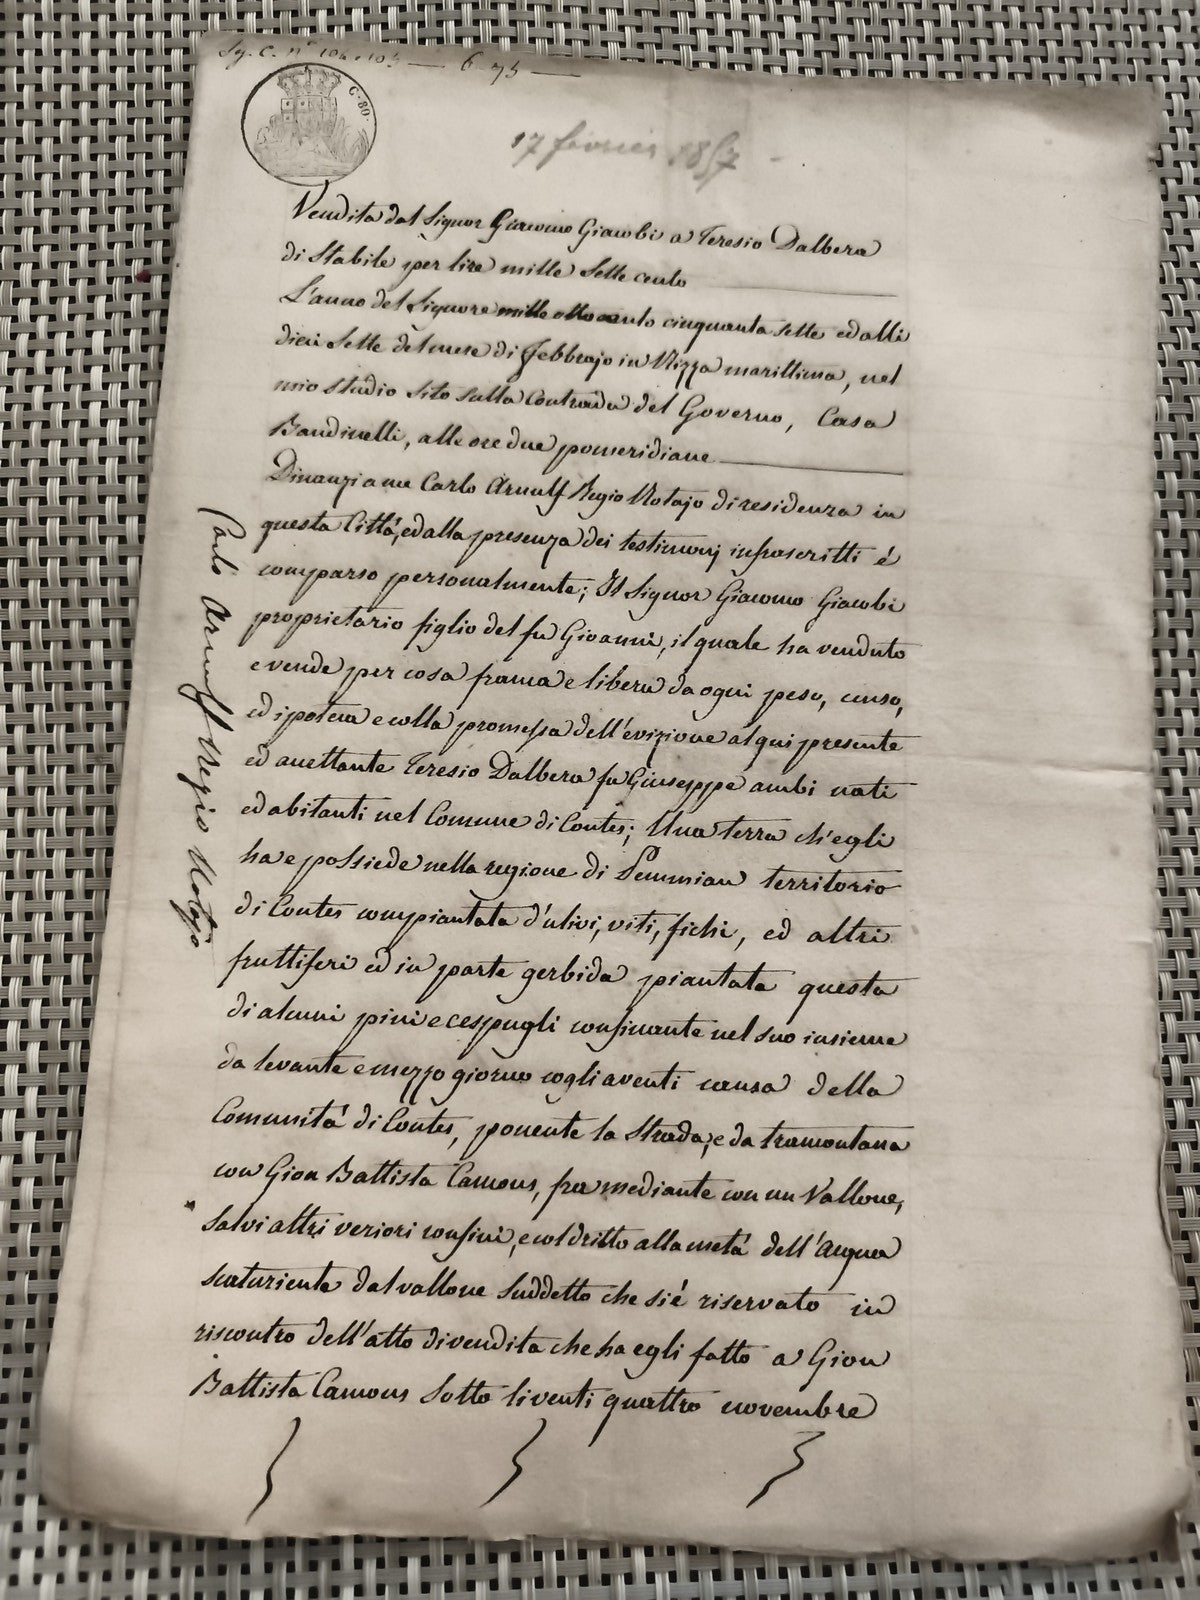 C. 80.
17 février 1857
Vendita dal Signor Giacomo Giacobi a Teresio Dalbera
di Stabile per lire mille Sette cento
L'anno del Signore mille otto cento cinquanta sette ed alli
dieci Sette del mese di Febbrajo in Nizza marittima, nel
mio studio sito sulla Contrada del Governo, Casa
Bandinelli, alle ore due pomeridiane
Dinanzi a me Carlo Arnulf Regio Notajo di residenza in
questa Città, ed alla presenza dei testimonj infrascritti é
comparso personalmente; Il Signor Giacomo Giacobi
proprietario figlio del fu Giovanni, il quale ha venduto
e vende per cosa franca e libera da ogni peso, censo,
ed ipoteca e colla promessa dell'evizione al qui presente
ed accettante Teresio Dalbera fu Giuseppe ambi nati
ed abitanti nel Comune di Contes; Una terra ch'egli
ha e possiede nella regione di territorio
di Contes compiantata d'ulivi, viti, fichi, ed altri
fruttiferi ed in parte gerbida piantata questa
di alcuni pini e cespugli confinante nel suo insieme
da levante e mezzo giorno cogli aventi causa della
Comunità di Contes, ponente la Strada, e da tramontana
con Gion Battista Camous, fra mediante con un Vallone,
Salvi altri veriori confini, e col dritto alla metà dell'acqua
scaturiente dal vallone Suddetto che si é riservato in
riscontro dell'atto di vendita che ha egli fatto a Gion
Battista Camous Sotto li venti quattro novembre
Carlo Arnulf Regio Notajo